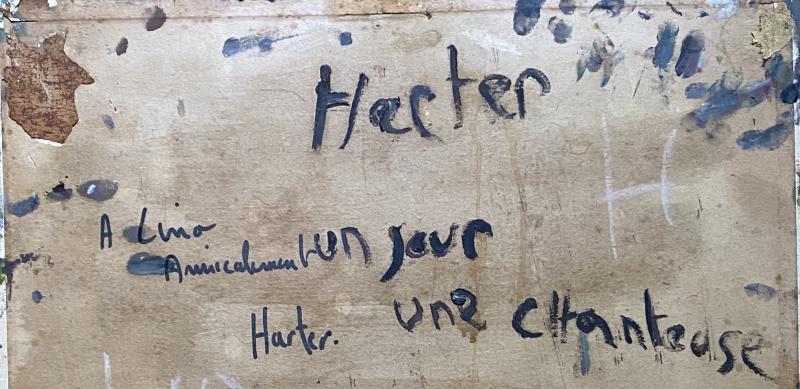 Harter
H
A Lina
Amicalement
Harter.
un jour
une CHanteuse